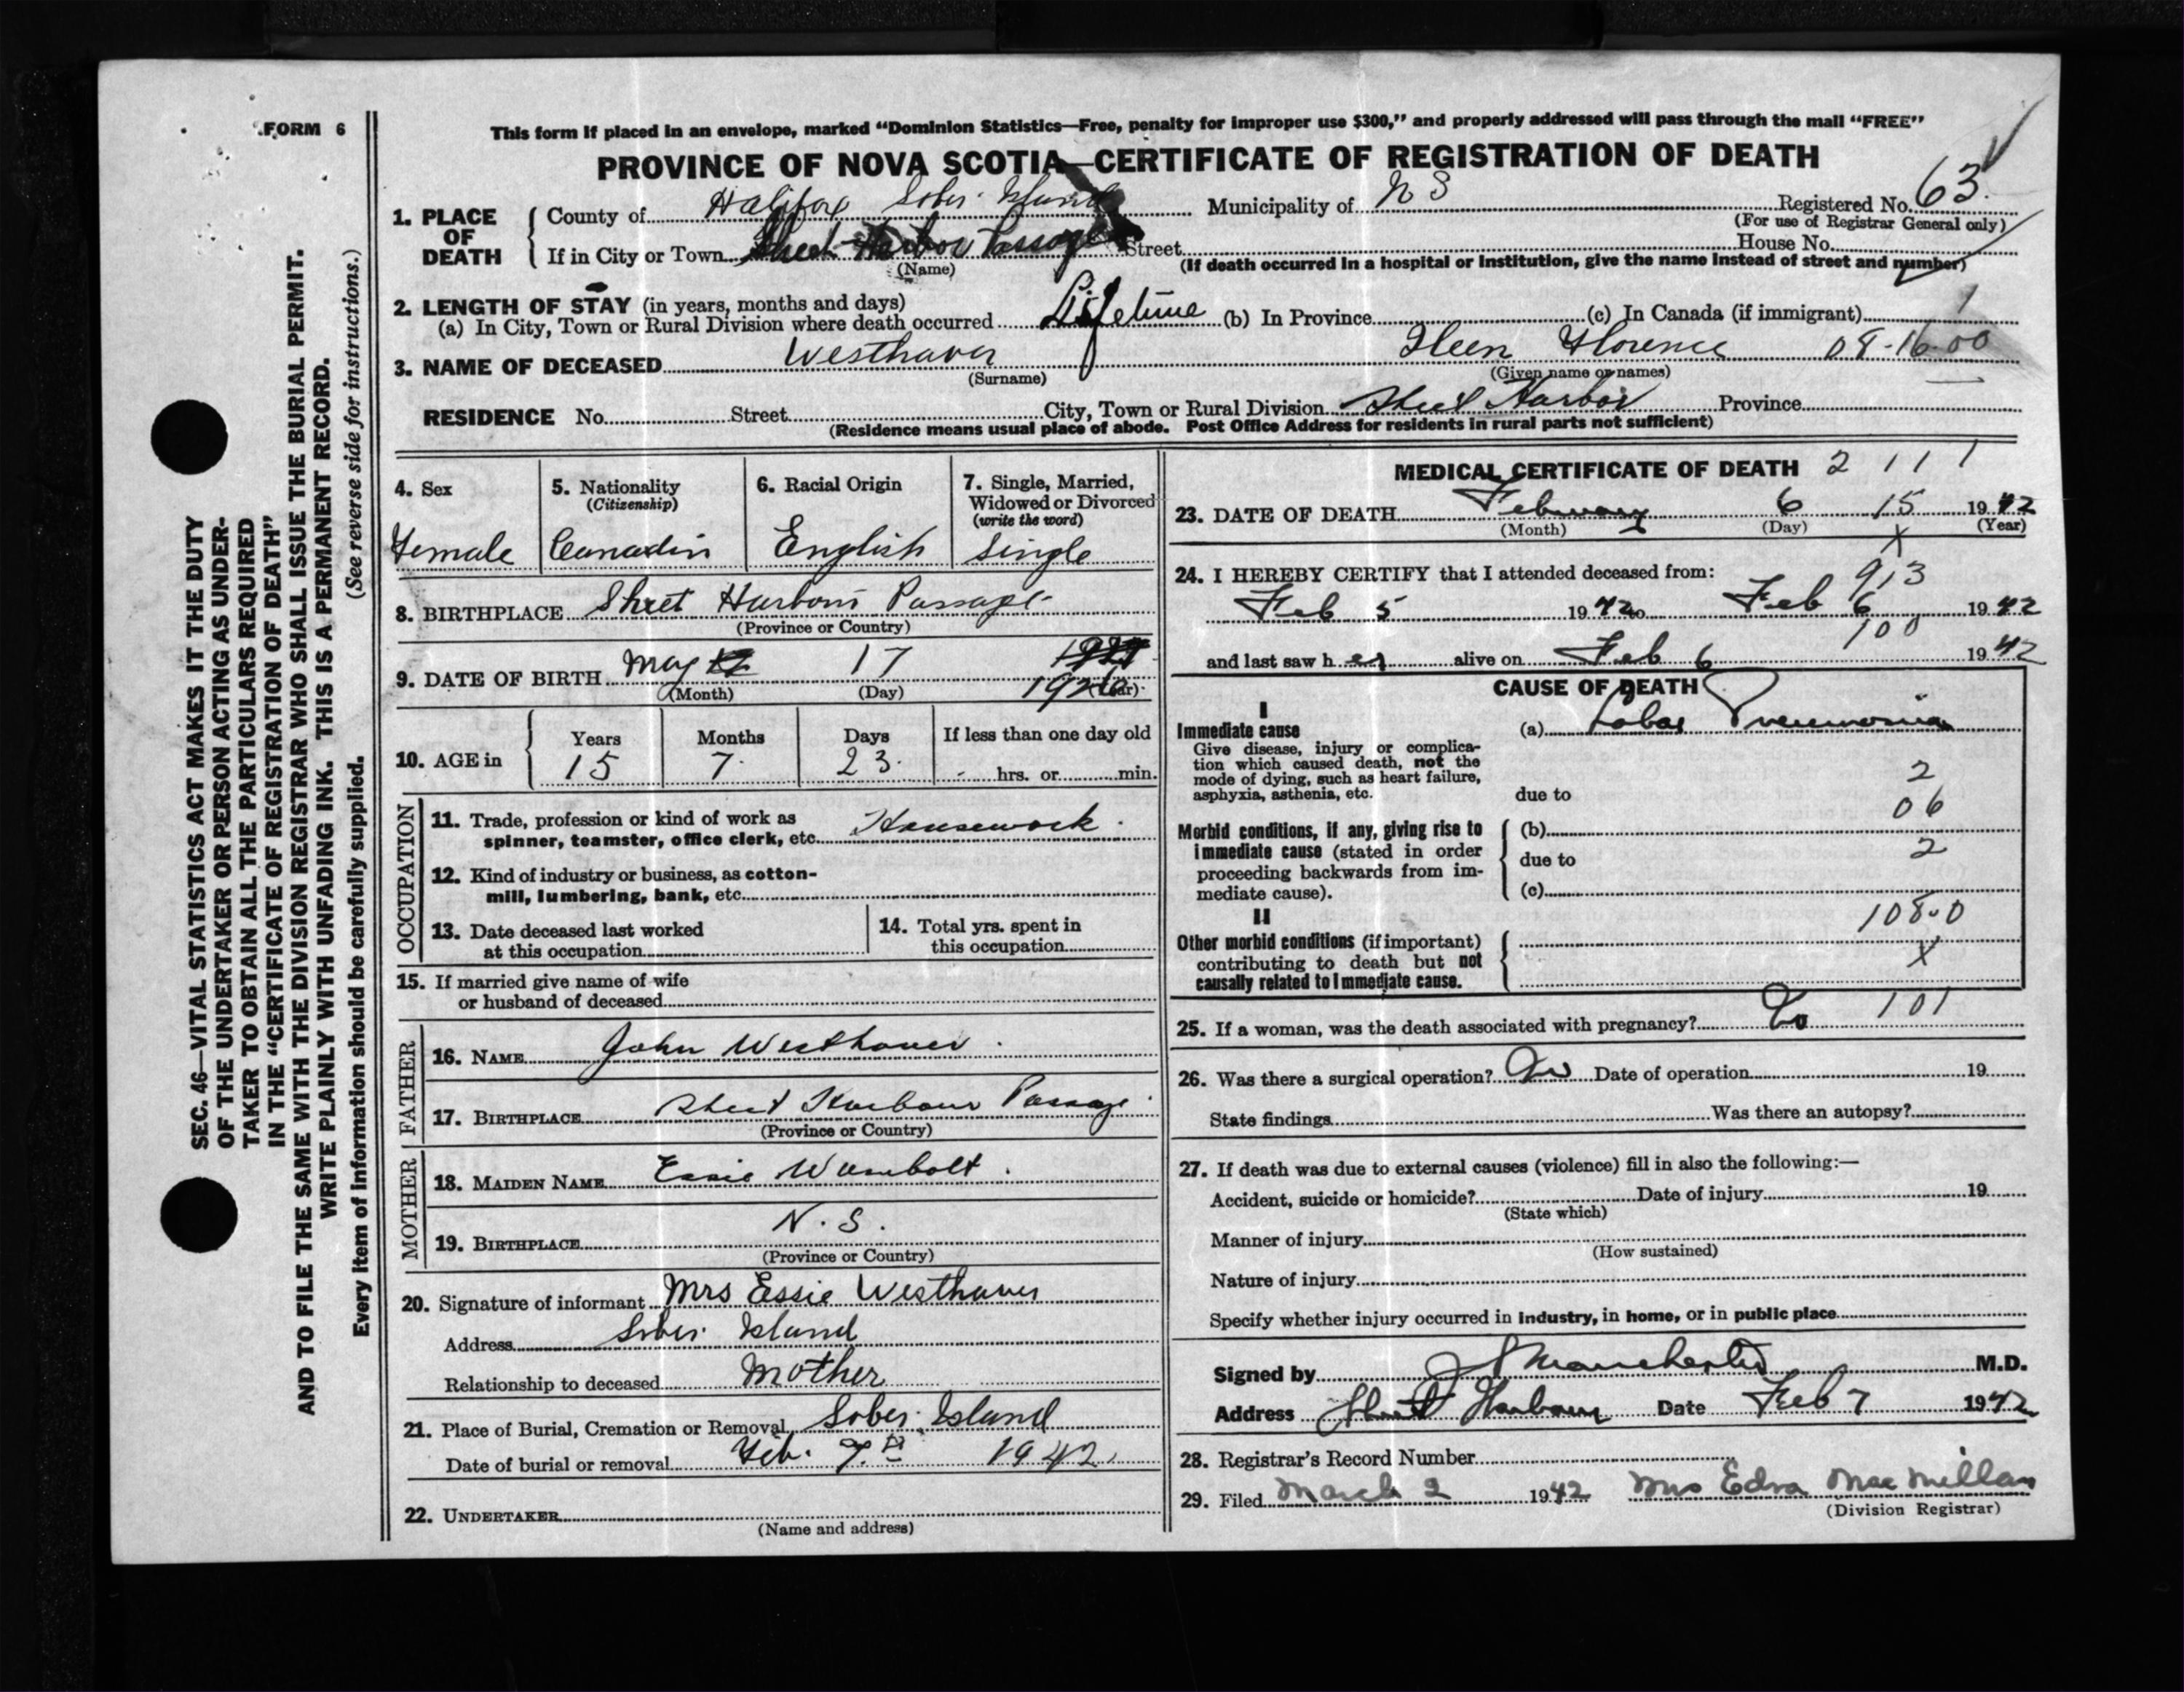 FORM 6
This form if placed in an envelope, marked “Dominion Statistics—Free, penalty for improper use $300,” and properly addressed will pass through the mail “FREE”
PROVINCE OF NOVA SCOTIA—CERTIFICATE OF REGISTRATION OF DEATH
1. PLACE OF DEATH
County of Halifax Sober Island Municipality of N S Registered No. 63
(For use of Registrar General only)
If in City or Town Sheet Harbor Passage Street House No.
(Name) (If death occurred in a hospital or institution, give the name instead of street and number)
2. LENGTH OF STAY (in years, months and days)
(a) In City, Town or Rural Division where death occurred Lifetime (b) In Province (c) In Canada (if immigrant) 1
3. NAME OF DECEASED Westhaver Florence 08-16-00
(Surname) (Given name or names)
RESIDENCE No. Street City, Town or Rural Division Sheet Harbor Province
(Residence means usual place of abode. Post Office Address for residents in rural parts not sufficient)
4. Sex
Female
5. Nationality
(Citizenship)
Canadin
6. Racial Origin
English
7. Single, Married,
Widowed or Divorced
(write the word)
Single
8. BIRTHPLACE Sheet Harbour Passage
(Province or Country)
9. DATE OF BIRTH May 17 1926
(Month) (Day) (Year)
10. AGE in
Years Months Days If less than one day old
15 7 23 hrs. or min.
OCCUPATION
11. Trade, profession or kind of work as
spinner, teamster, office clerk, etc. Housework
12. Kind of industry or business, as cotton-
mill, lumbering, bank, etc.
13. Date deceased last worked
at this occupation
14. Total yrs. spent in
this occupation
15. If married give name of wife
or husband of deceased
FATHER
16. NAME John Westhaver
17. BIRTHPLACE Sheet Harbour Passage
(Province or Country)
MOTHER
18. MAIDEN NAME Essie Wambolt
19. BIRTHPLACE N.S.
(Province or Country)
20. Signature of informant Mrs Essie Westhaver
Address Sober Island
Relationship to deceased Mother
21. Place of Burial, Cremation or Removal Sober Island
Date of burial or removal Feb. 1942
22. UNDERTAKER
(Name and address)
MEDICAL CERTIFICATE OF DEATH 2 1 1 1
23. DATE OF DEATH February 6 15 1942
(Month) (Day) (Year)
X
24. I HEREBY CERTIFY that I attended deceased from:
913
Feb 5 1942 to Feb 6 1942
100
and last saw her alive on Feb 6 1942
CAUSE OF DEATH
I
Immediate cause
Give disease, injury or complica-
tion which caused death, not the
mode of dying, such as heart failure,
asphyxia, asthenia, etc.
(a) Lobar Pneumonia
2
due to
06
Morbid conditions, if any, giving rise to
immediate cause (stated in order
proceeding backwards from im-
mediate cause).
(b)
2
due to
(c)
II
108-0
Other morbid conditions (if important)
contributing to death but not
causally related to immediate cause.
X
25. If a woman, was the death associated with pregnancy? No 101
26. Was there a surgical operation? No Date of operation 19
State findings Was there an autopsy?
27. If death was due to external causes (violence) fill in also the following:—
Accident, suicide or homicide? Date of injury 19
(State which)
Manner of injury
(How sustained)
Nature of injury
Specify whether injury occurred in industry, in home, or in public place
Signed by Manchester M.D.
Address Sheet Harbour Date Feb 7 1942
28. Registrar's Record Number
29. Filed March 2 1942 Mrs Edna MacMillan
(Division Registrar)
SEC. 46—VITAL STATISTICS ACT MAKES IT THE DUTY
OF THE UNDERTAKER OR PERSON ACTING AS UNDER-
TAKER TO OBTAIN ALL THE PARTICULARS REQUIRED
IN THE “CERTIFICATE OF REGISTRATION OF DEATH”
AND TO FILE THE SAME WITH THE DIVISION REGISTRAR WHO SHALL ISSUE THE BURIAL PERMIT.
WRITE PLAINLY WITH UNFADING INK. THIS IS A PERMANENT RECORD.
(See reverse side for instructions.)
Every item of information should be carefully supplied.